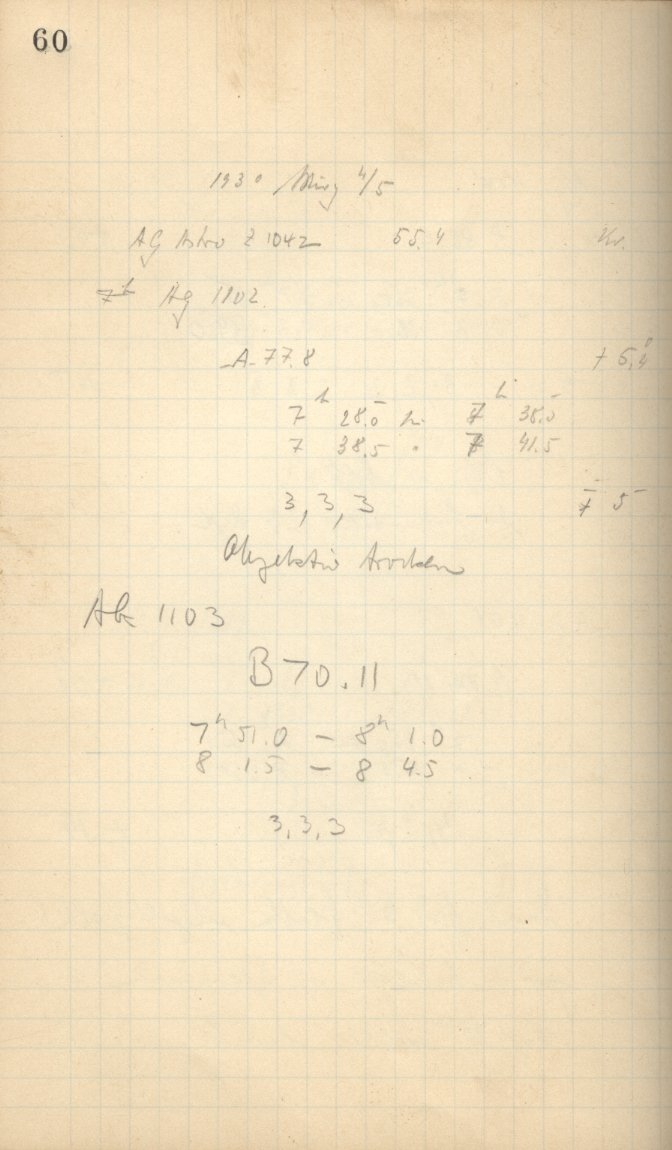 60
1930 März 4/5
AG Astro Z 1042 55.4 Kr.
Ag 1102
A 77.8 + 5.4
7 h 28.0 7 h 38.5
7 38.5 7 41.5
3, 3, 3 + 5
Objektiv trocken
Ab 1103
B 70.11
7h 51.0 – 8h 1.0
8 1.5 – 8 4.5
3, 3, 3